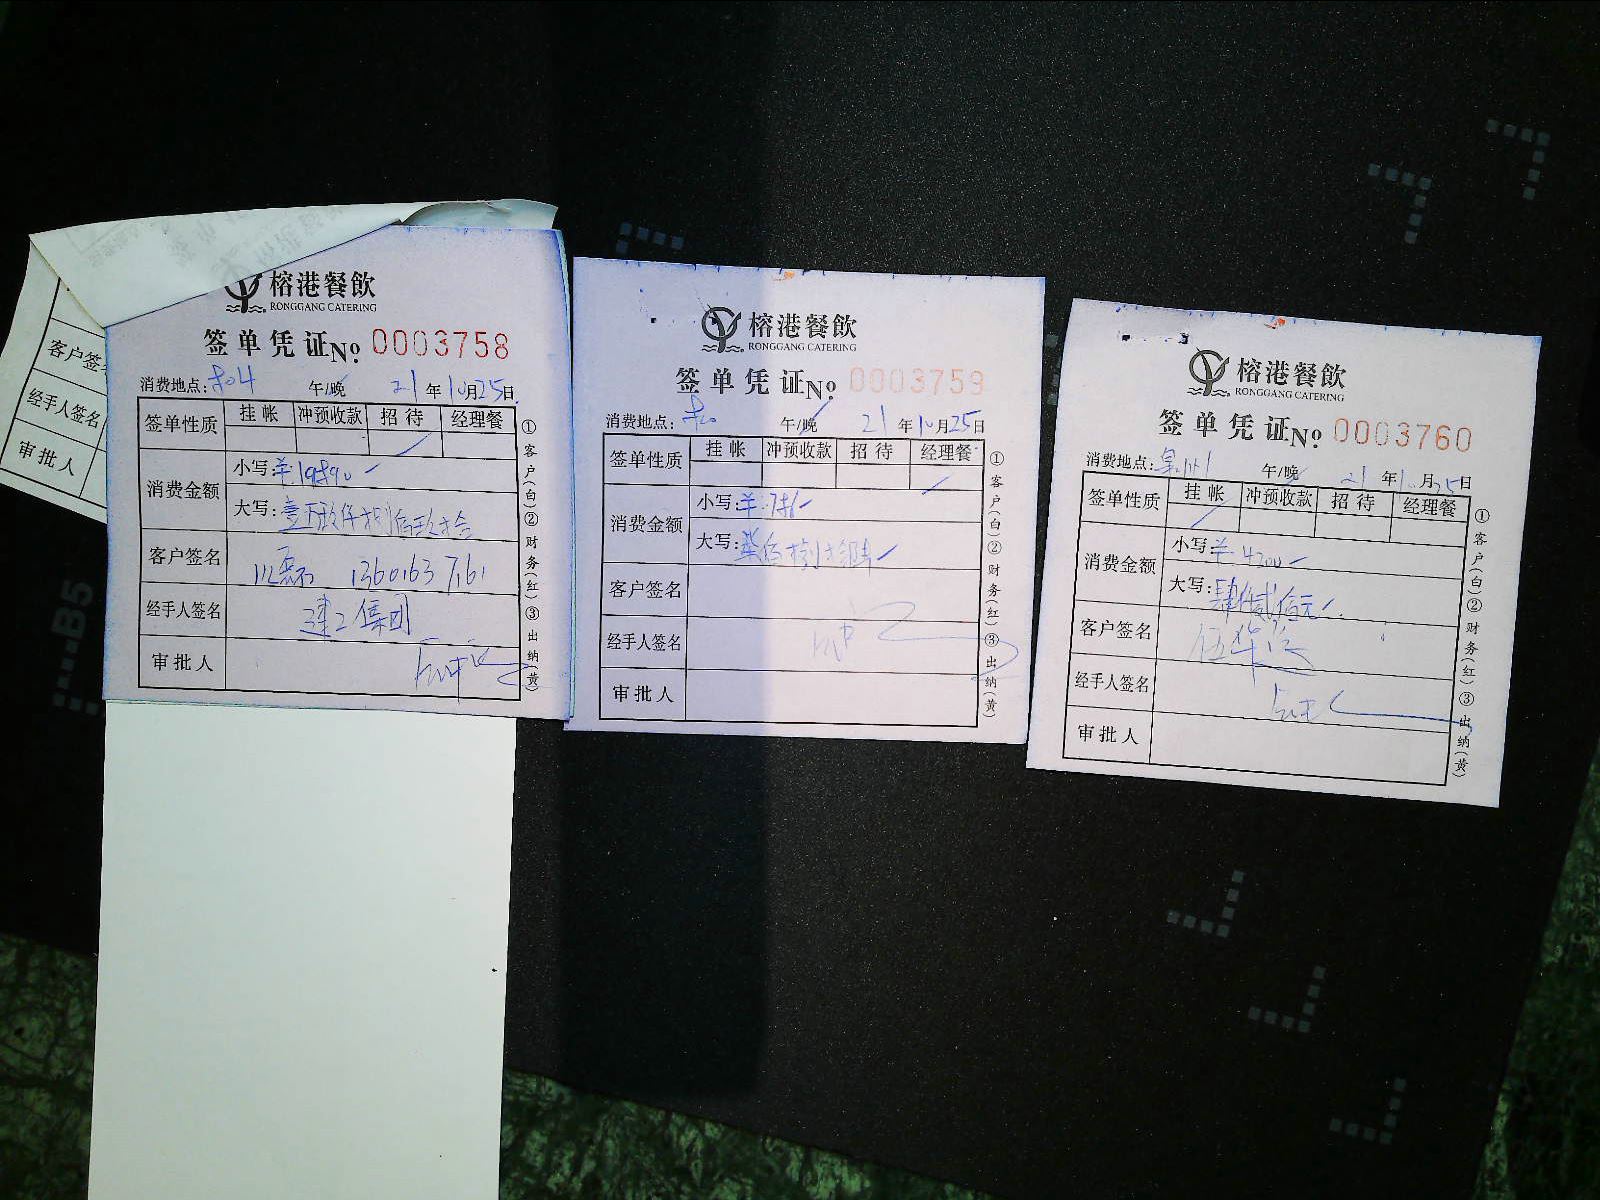 榕港餐飲
RONGGANG CATERING
签单凭证No 0003758
消费地点: 午/晚 21年10月25日
签单性质 挂帐 冲预收款 招待 经理餐
消费金额 小写:
大写:
客户签名 1360163 7161
经手人签名 建工集团
审批人
①客户(白)②财务(红)③出纳(黄)
客户签
经手人签名
审批人
榕港餐飲
RONGGANG CATERING
签单凭证No 0003759
消费地点: 午/晚 21年10月25日
签单性质 挂帐 冲预收款 招待 经理餐
消费金额 小写:
大写:
客户签名
经手人签名
审批人
①客户(白)②财务(红)③出纳(黄)
榕港餐飲
RONGGANG CATERING
签单凭证No 0003760
消费地点: 午/晚 21年10月25日
签单性质 挂帐 冲预收款 招待 经理餐
消费金额 小写:¥4200
大写:肆仟贰佰元
客户签名
经手人签名
审批人
①客户(白)②财务(红)③出纳(黄)
B5